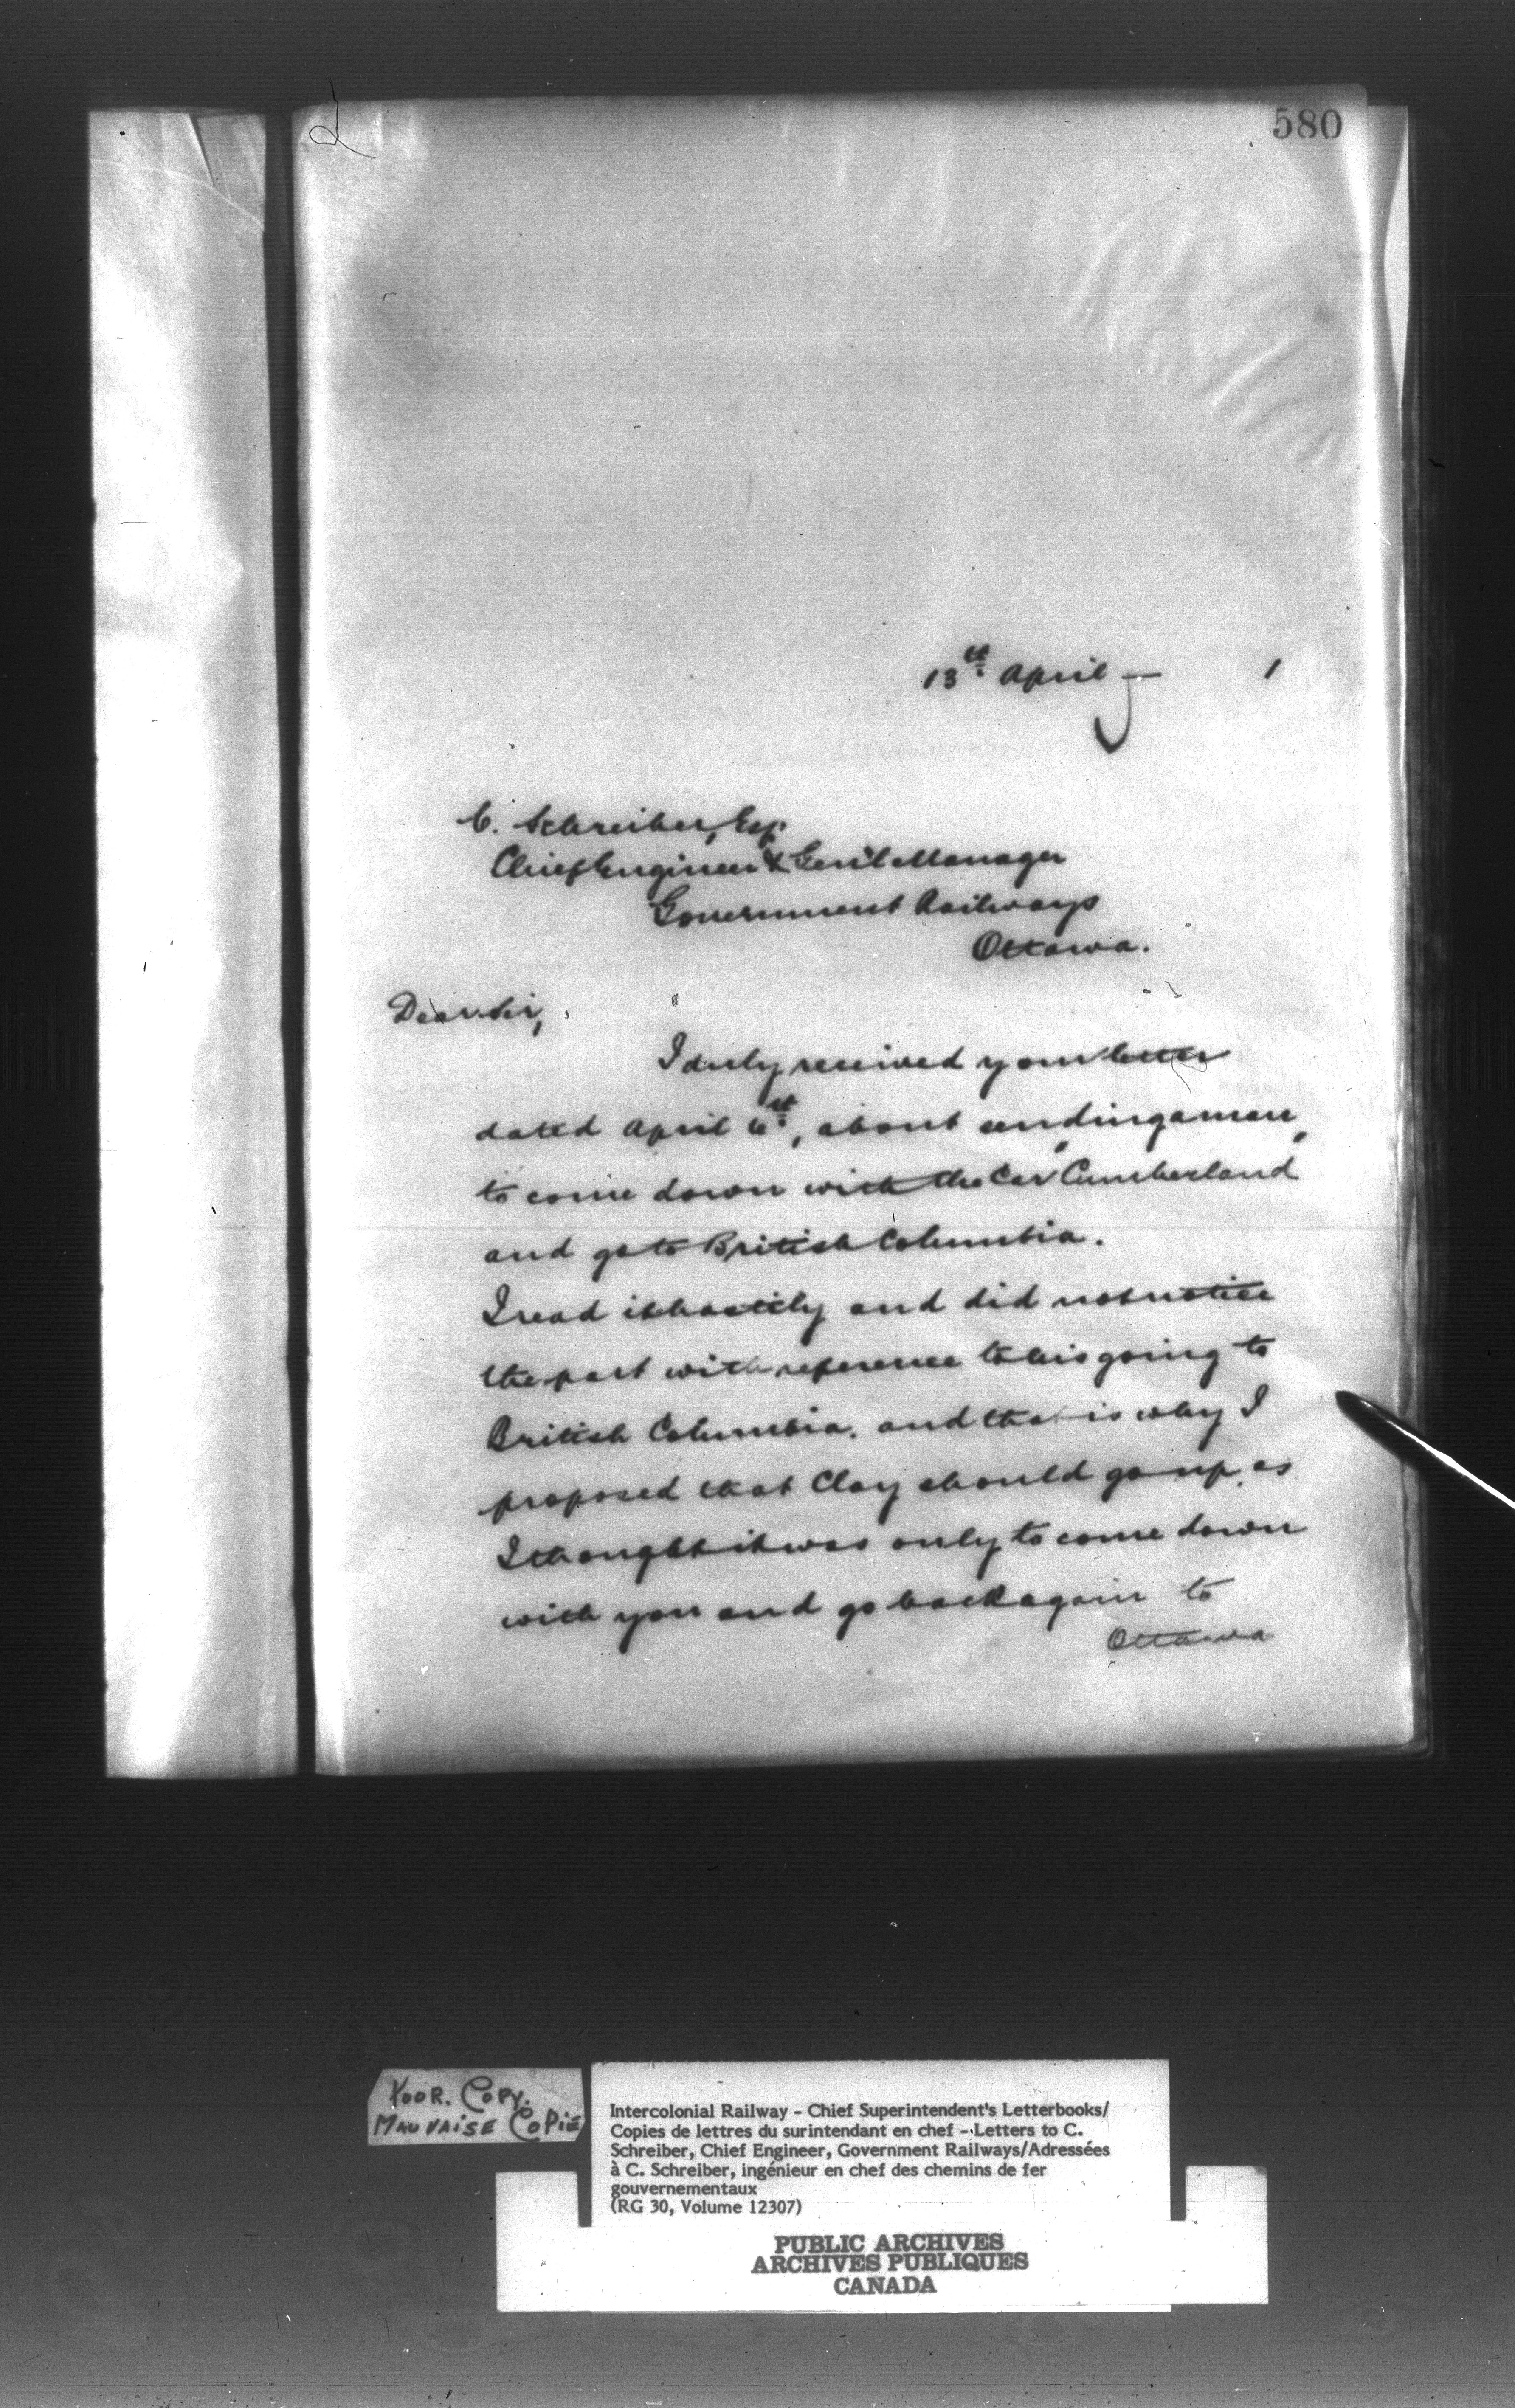 580
13th April — 1
C. Schreiber, Esq.
Chief Engineer & Gen'l Manager
Government Railways
Ottawa.
Dear Sir,
I duly received your letter
dated April 6th, about sending a man
to come down with the Car "Cumberland"
and go to British Columbia.
I read it hastily and did not notice
the part with reference to his going to
British Columbia. and that is why I
proposed that Clay should go up, as
I thought it was only to come down
with you and go back again to
Ottawa
POOR. COPY.
MAUVAISE COPIE
Intercolonial Railway - Chief Superintendent's Letterbooks/
Copies de lettres du surintendant en chef - Letters to C.
Schreiber, Chief Engineer, Government Railways/Adressées
à C. Schreiber, ingénieur en chef des chemins de fer
gouvernementaux
(RG 30, Volume 12307)
PUBLIC ARCHIVES
ARCHIVES PUBLIQUES
CANADA